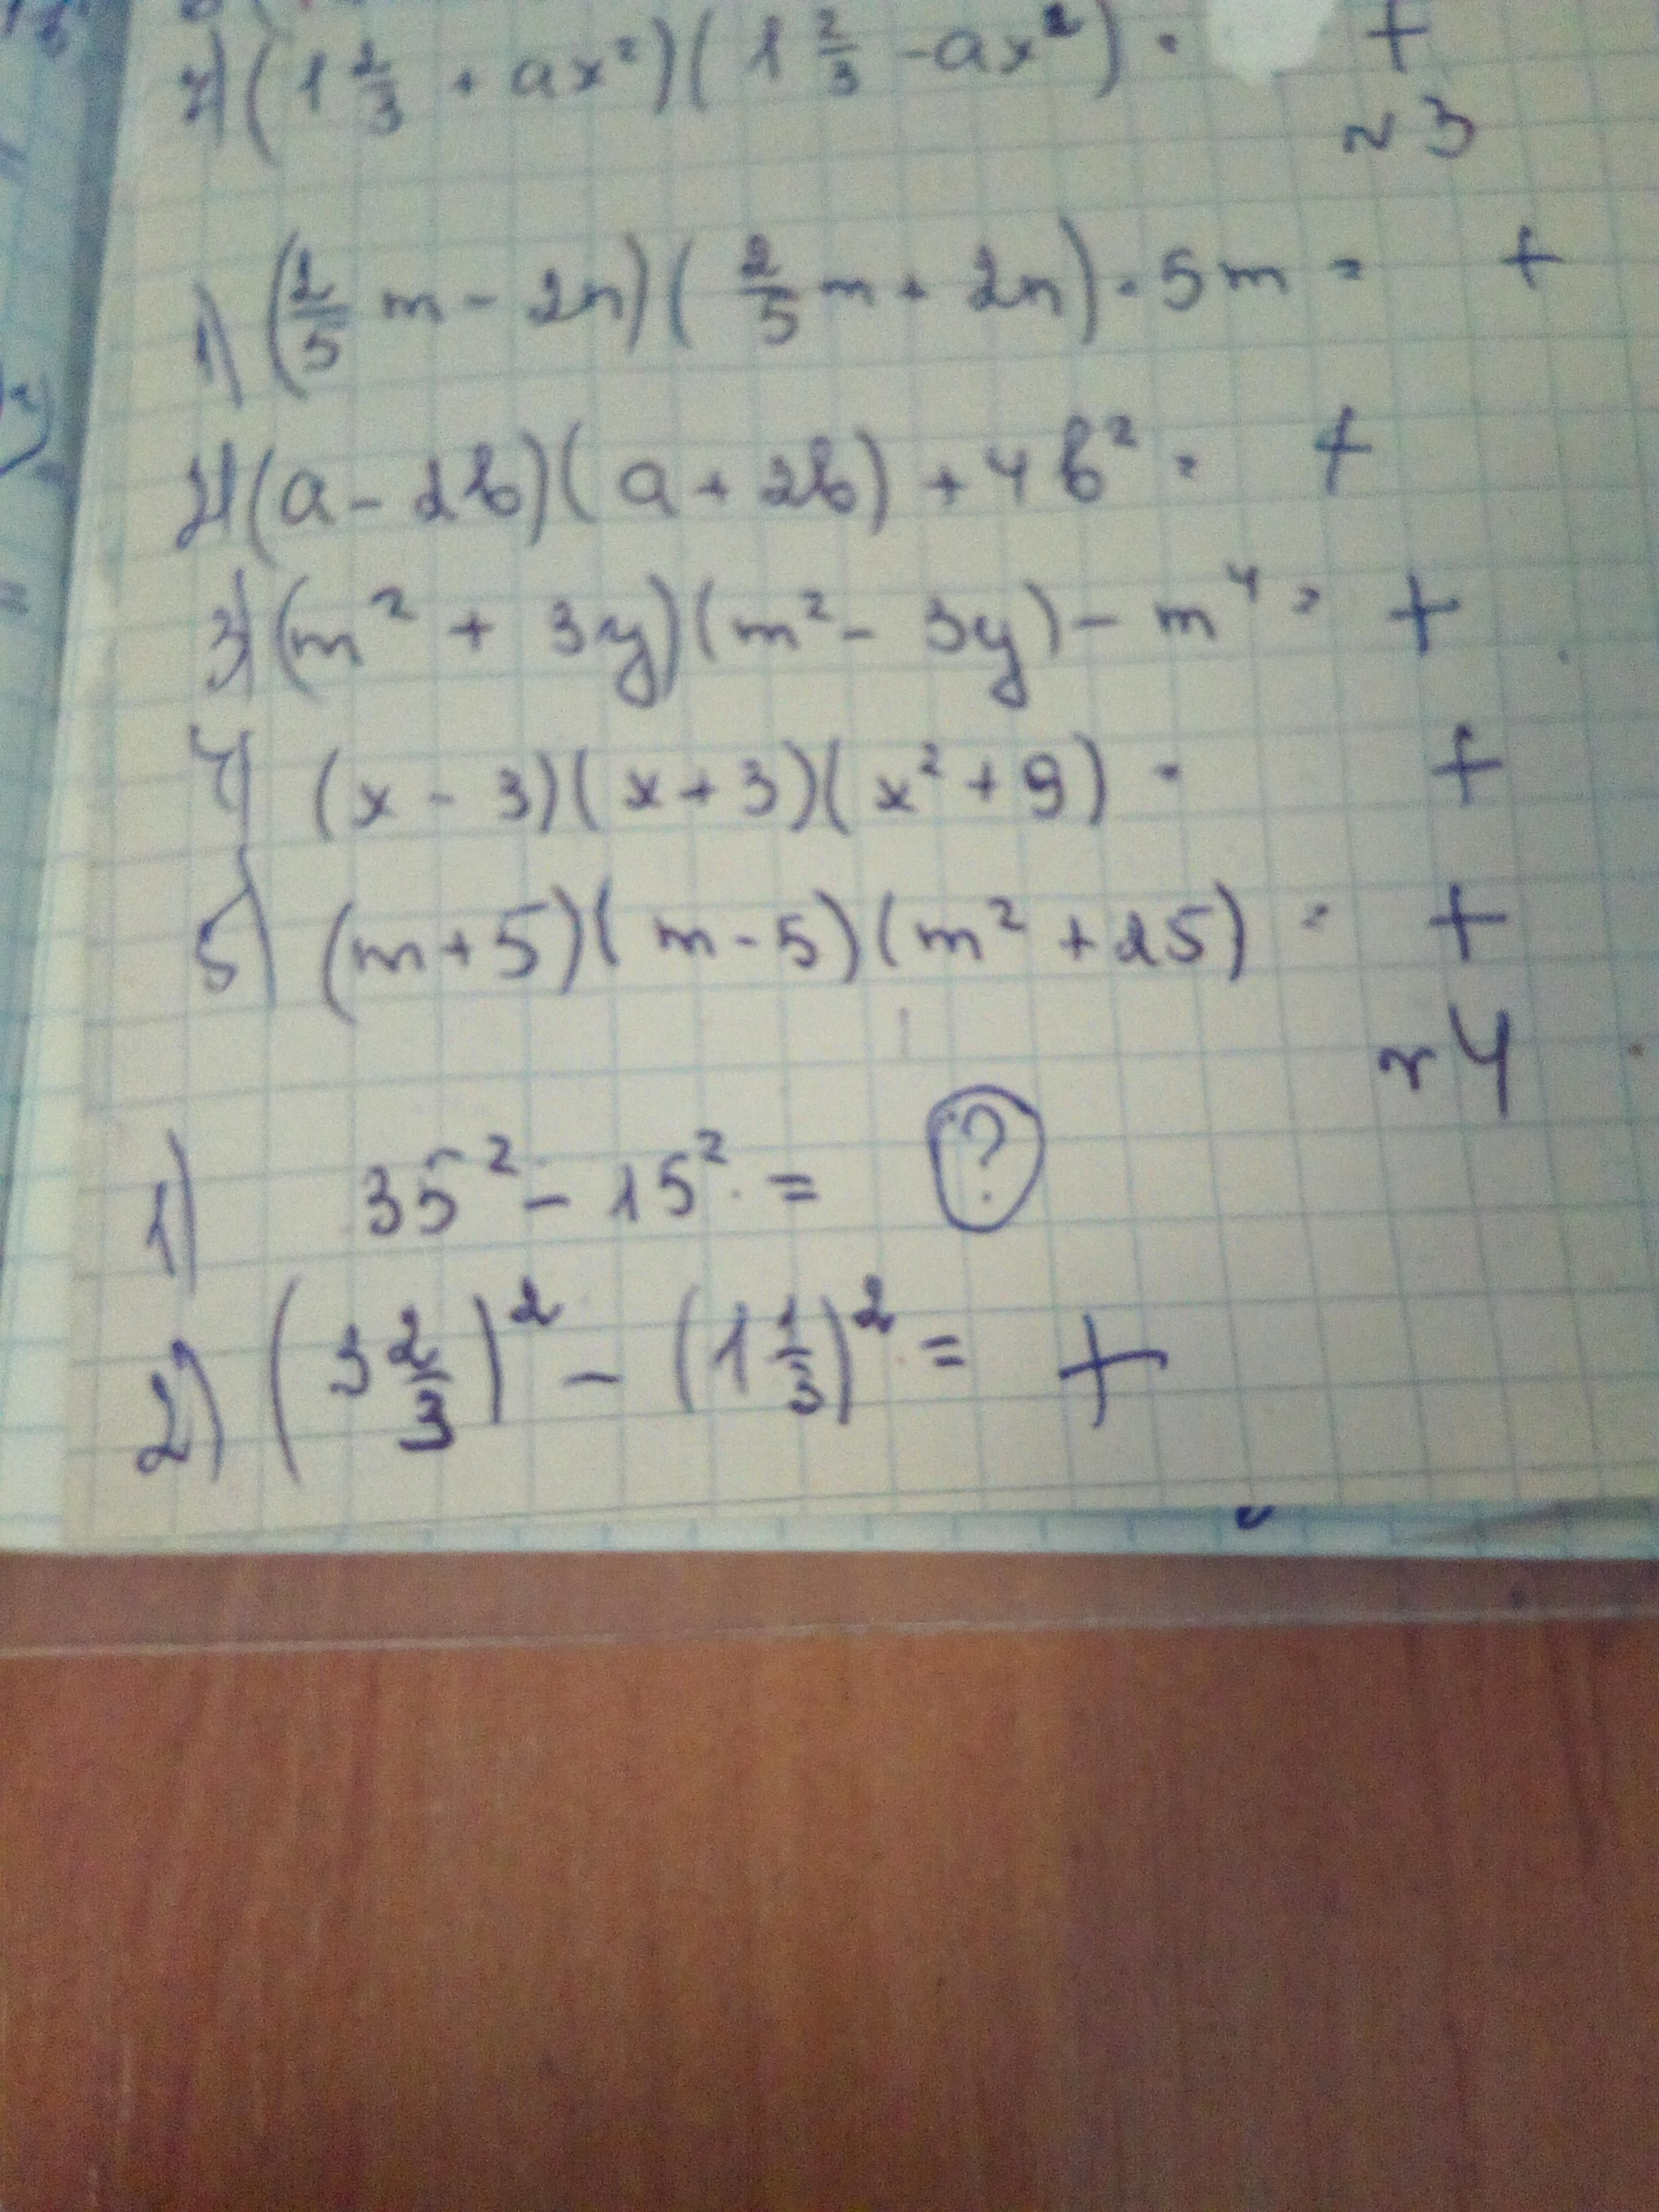 7) (1 2/3 + ax²)(1 2/3 - ax²) = +
~3
1) (2/5 m - 2n)(2/5 m + 2n) · 5m = +
2) (a - 2b)(a + 2b) + 4b² = +
3) (m² + 3y)(m² - 3y) - m⁴ = +
4) (x - 3)(x + 3)(x² + 9) = +
5) (m + 5)(m - 5)(m² + 25) = +
~4
1) 35² - 15² = ?
2) (3 2/3)² - (1 1/3)² = +